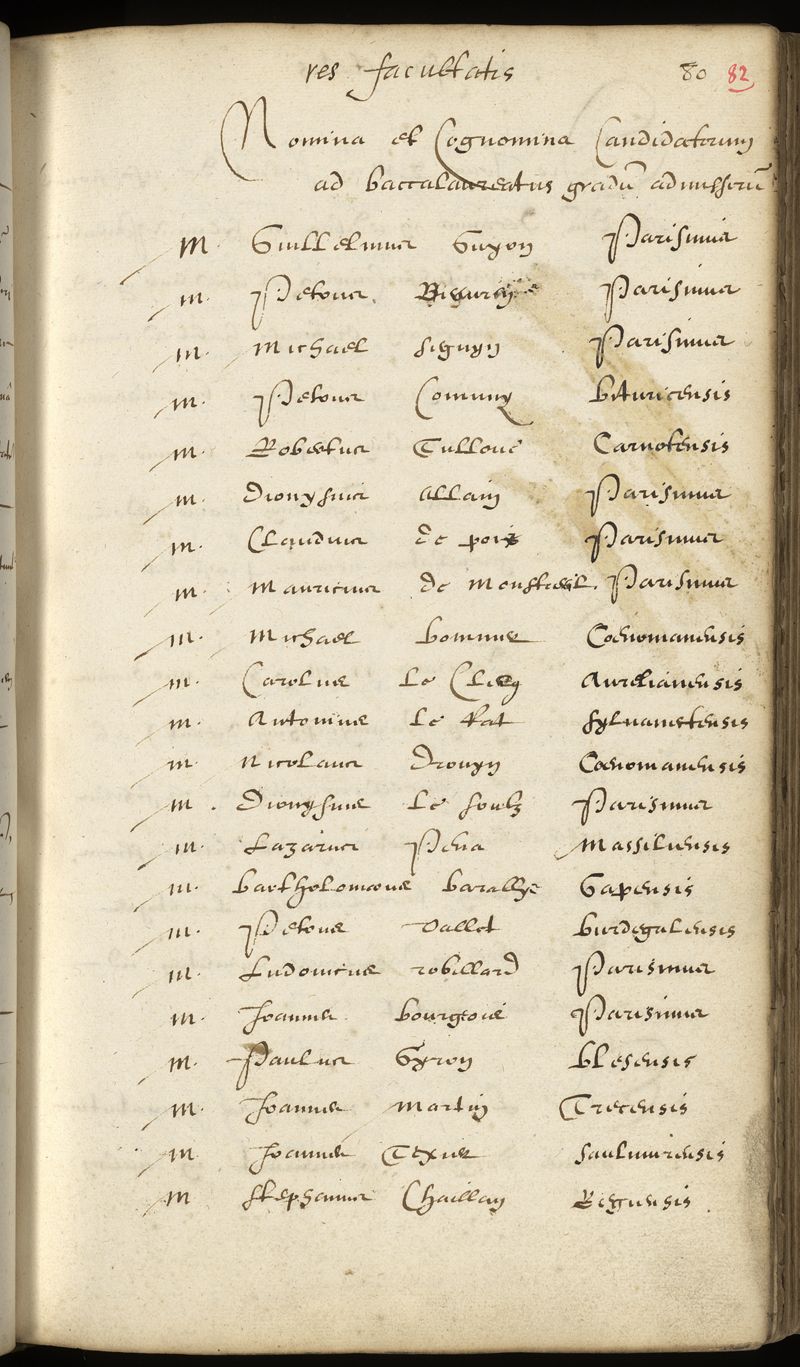 res facultatis 80 82
Nomina et Cognomina Candidatorum
ad baccalaureatus gradū admissorū
M. Guillelmus Guyon Parisinus
m. Petrus Parisinus
m. Michael seguyn Parisinus
m. Petrus Comuny bituricensis
m. Robertus Tulloue Carnotensis
m. Dionysius Allain Parisinus
m. Claudius de pois Parisinus
m. Mauricius de Monstreil. Parisinus
m. Michael bommer Coenomanensis
m. Carolus le Clerq Aurelianensis
m. Antonius le Rat sylvanectensis
m. Nicolaus Drouyn Coenomanensis
m. Dionysius le soubz Parisinus
m. Lazarus Pena Massiliensis
m. bartholomoeus barallye Gapensis
m. Petrus vallet burdegalensis
m. Ludovicus robillard Parisinus
m. Joannes bourgeois Parisinus
m. Paulus Gyron blesensis
m. Joannes Martin Trecensis
m. Joannes Texier saulmuriensis
m stephanus Chaillan Regiensis.